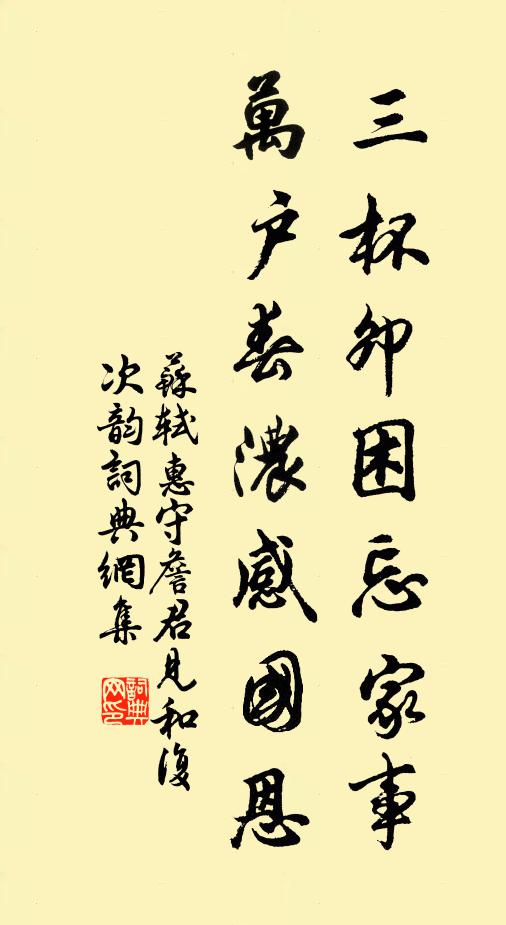 三杯卯困忘家事
萬户春濃感國恩
蘇軾惠守詹君見和復
次韵詞典網集
詞典网印